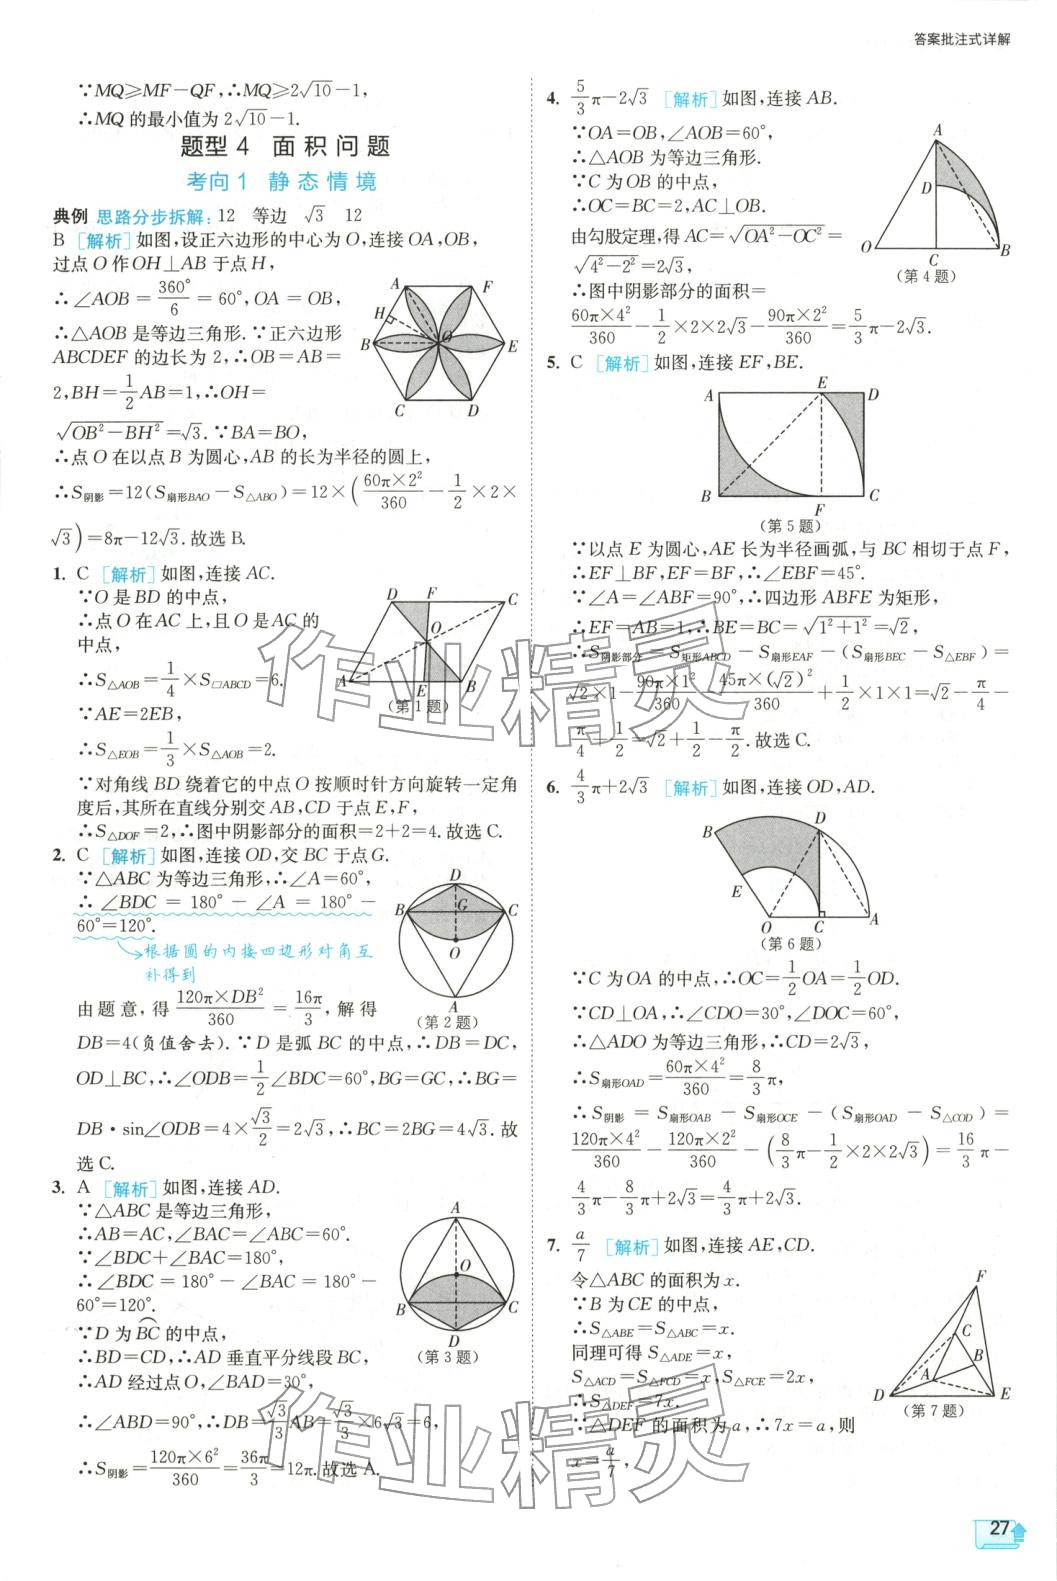 答案批注式详解
∵MQ≥MF−QF,∴MQ≥2√10−1,
∴MQ 的最小值为 2√10−1.
题型 4 面积问题
考向 1 静态情境
典例 思路分步拆解: 12 等边 √3 12
B [解析]如图,设正六边形的中心为 O,连接 OA,OB,
过点 O 作 OH⊥AB 于点 H,
∴∠AOB = 360°/6 = 60°,OA = OB,
∴△AOB 是等边三角形. ∵正六边形
ABCDEF 的边长为 2,∴OB=AB=
2,BH=1/2AB=1,∴OH=
√(OB²−BH²)=√3. ∵BA=BO,
∴点 O 在以点 B 为圆心,AB 的长为半径的圆上,
∴S阴影=12(S扇形BAO−S△ABO)=12×(60π×2²/360−1/2×2×
√3)=8π−12√3. 故选 B.
A F H B O E C D
1. C [解析]如图,连接 AC.
∵O 是 BD 的中点,
∴点 O 在 AC 上,且 O 是 AC 的
中点,
∴S△AOB=1/4×S□ABCD=6.
∵AE=2EB,
∴S△EOB=1/3×S△AOB=2.
D F C O A E B
(第 1 题)
∵对角线 BD 绕着它的中点 O 按顺时针方向旋转一定角
度后,其所在直线分别交 AB,CD 于点 E,F,
∴S△DOF=2,∴图中阴影部分的面积=2+2=4. 故选 C.
2. C [解析]如图,连接 OD,交 BC 于点 G.
∵△ABC 为等边三角形,∴∠A=60°,
∴ ∠BDC = 180° − ∠A = 180° −
60°=120°.
根据圆的内接四边形对角互
补得到
由题意,得 120π×DB²/360 = 16π/3,解得
D B G C O A
(第 2 题)
DB=4(负值舍去). ∵D 是弧 BC 的中点,∴DB=DC,
OD⊥BC,∴∠ODB=1/2∠BDC=60°,BG=GC,∴BG=
DB·sin∠ODB=4×√3/2=2√3,∴BC=2BG=4√3. 故
选 C.
3. A [解析]如图,连接 AD.
∵△ABC 是等边三角形,
∴AB=AC,∠BAC=∠ABC=60°.
∵∠BDC+∠BAC=180°,
∴∠BDC = 180° − ∠BAC = 180° −
60°=120°.
∵D 为 BC⌒ 的中点,
∴BD=CD,∴AD 垂直平分线段 BC,
∴AD 经过点 O,∠BAD=30°,
∴∠ABD=90°,∴DB=√3/3AB=√3/3×6√3=6,
∴S阴影=120π×6²/360=36π/3=12π. 故选 A.
A O B C D
(第 3 题)
4. 5/3π−2√3 [解析]如图,连接 AB.
∵OA=OB,∠AOB=60°,
∴△AOB 为等边三角形.
∵C 为 OB 的中点,
∴OC=BC=2,AC⊥OB.
由勾股定理,得 AC=√(OA²−OC²)=
√(4²−2²)=2√3,
∴图中阴影部分的面积=
60π×4²/360−1/2×2×2√3−90π×2²/360=5/3π−2√3.
A D O C B
(第 4 题)
5. C [解析]如图,连接 EF,BE.
A E D B F C
(第 5 题)
∵以点 E 为圆心,AE 长为半径画弧,与 BC 相切于点 F,
∴EF⊥BF,EF=BF,∴∠EBF=45°.
∵∠A=∠ABF=90°,∴四边形 ABFE 为矩形,
∴EF=AB=1,∴BE=BC=√(1²+1²)=√2,
∴S阴影部分=S矩形ABCD−S扇形EAF−(S扇形BEC−S△EBF)=
√2×1−90π×1²/360−45π×(√2)²/360+1/2×1×1=√2−π/4−
π/4+1/2=√2+1/2−π/2. 故选 C.
6. 4/3π+2√3 [解析]如图,连接 OD,AD.
B D E O C A
(第 6 题)
∵C 为 OA 的中点,∴OC=1/2OA=1/2OD.
∵CD⊥OA,∴∠CDO=30°,∠DOC=60°,
∴△ADO 为等边三角形,∴CD=2√3,
∴S扇形OAD=60π×4²/360=8/3π,
∴S阴影 = S扇形OAB − S扇形OCE − (S扇形OAD − S△COD) =
120π×4²/360−120π×2²/360−(8/3π−1/2×2×2√3)=16/3π−
4/3π−8/3π+2√3=4/3π+2√3.
7. a/7 [解析]如图,连接 AE,CD.
令△ABC 的面积为 x.
∵B 为 CE 的中点,
∴S△ABE=S△ABC=x.
同理可得 S△ADE=x,
S△ACD=S△FCD=x,S△FCE=2x,
∴S△DEF=7x.
∵△DEF 的面积为 a,∴7x=a,则
x=a/7,
F C B A D E
(第 7 题)
作业精灵
作业精灵
27